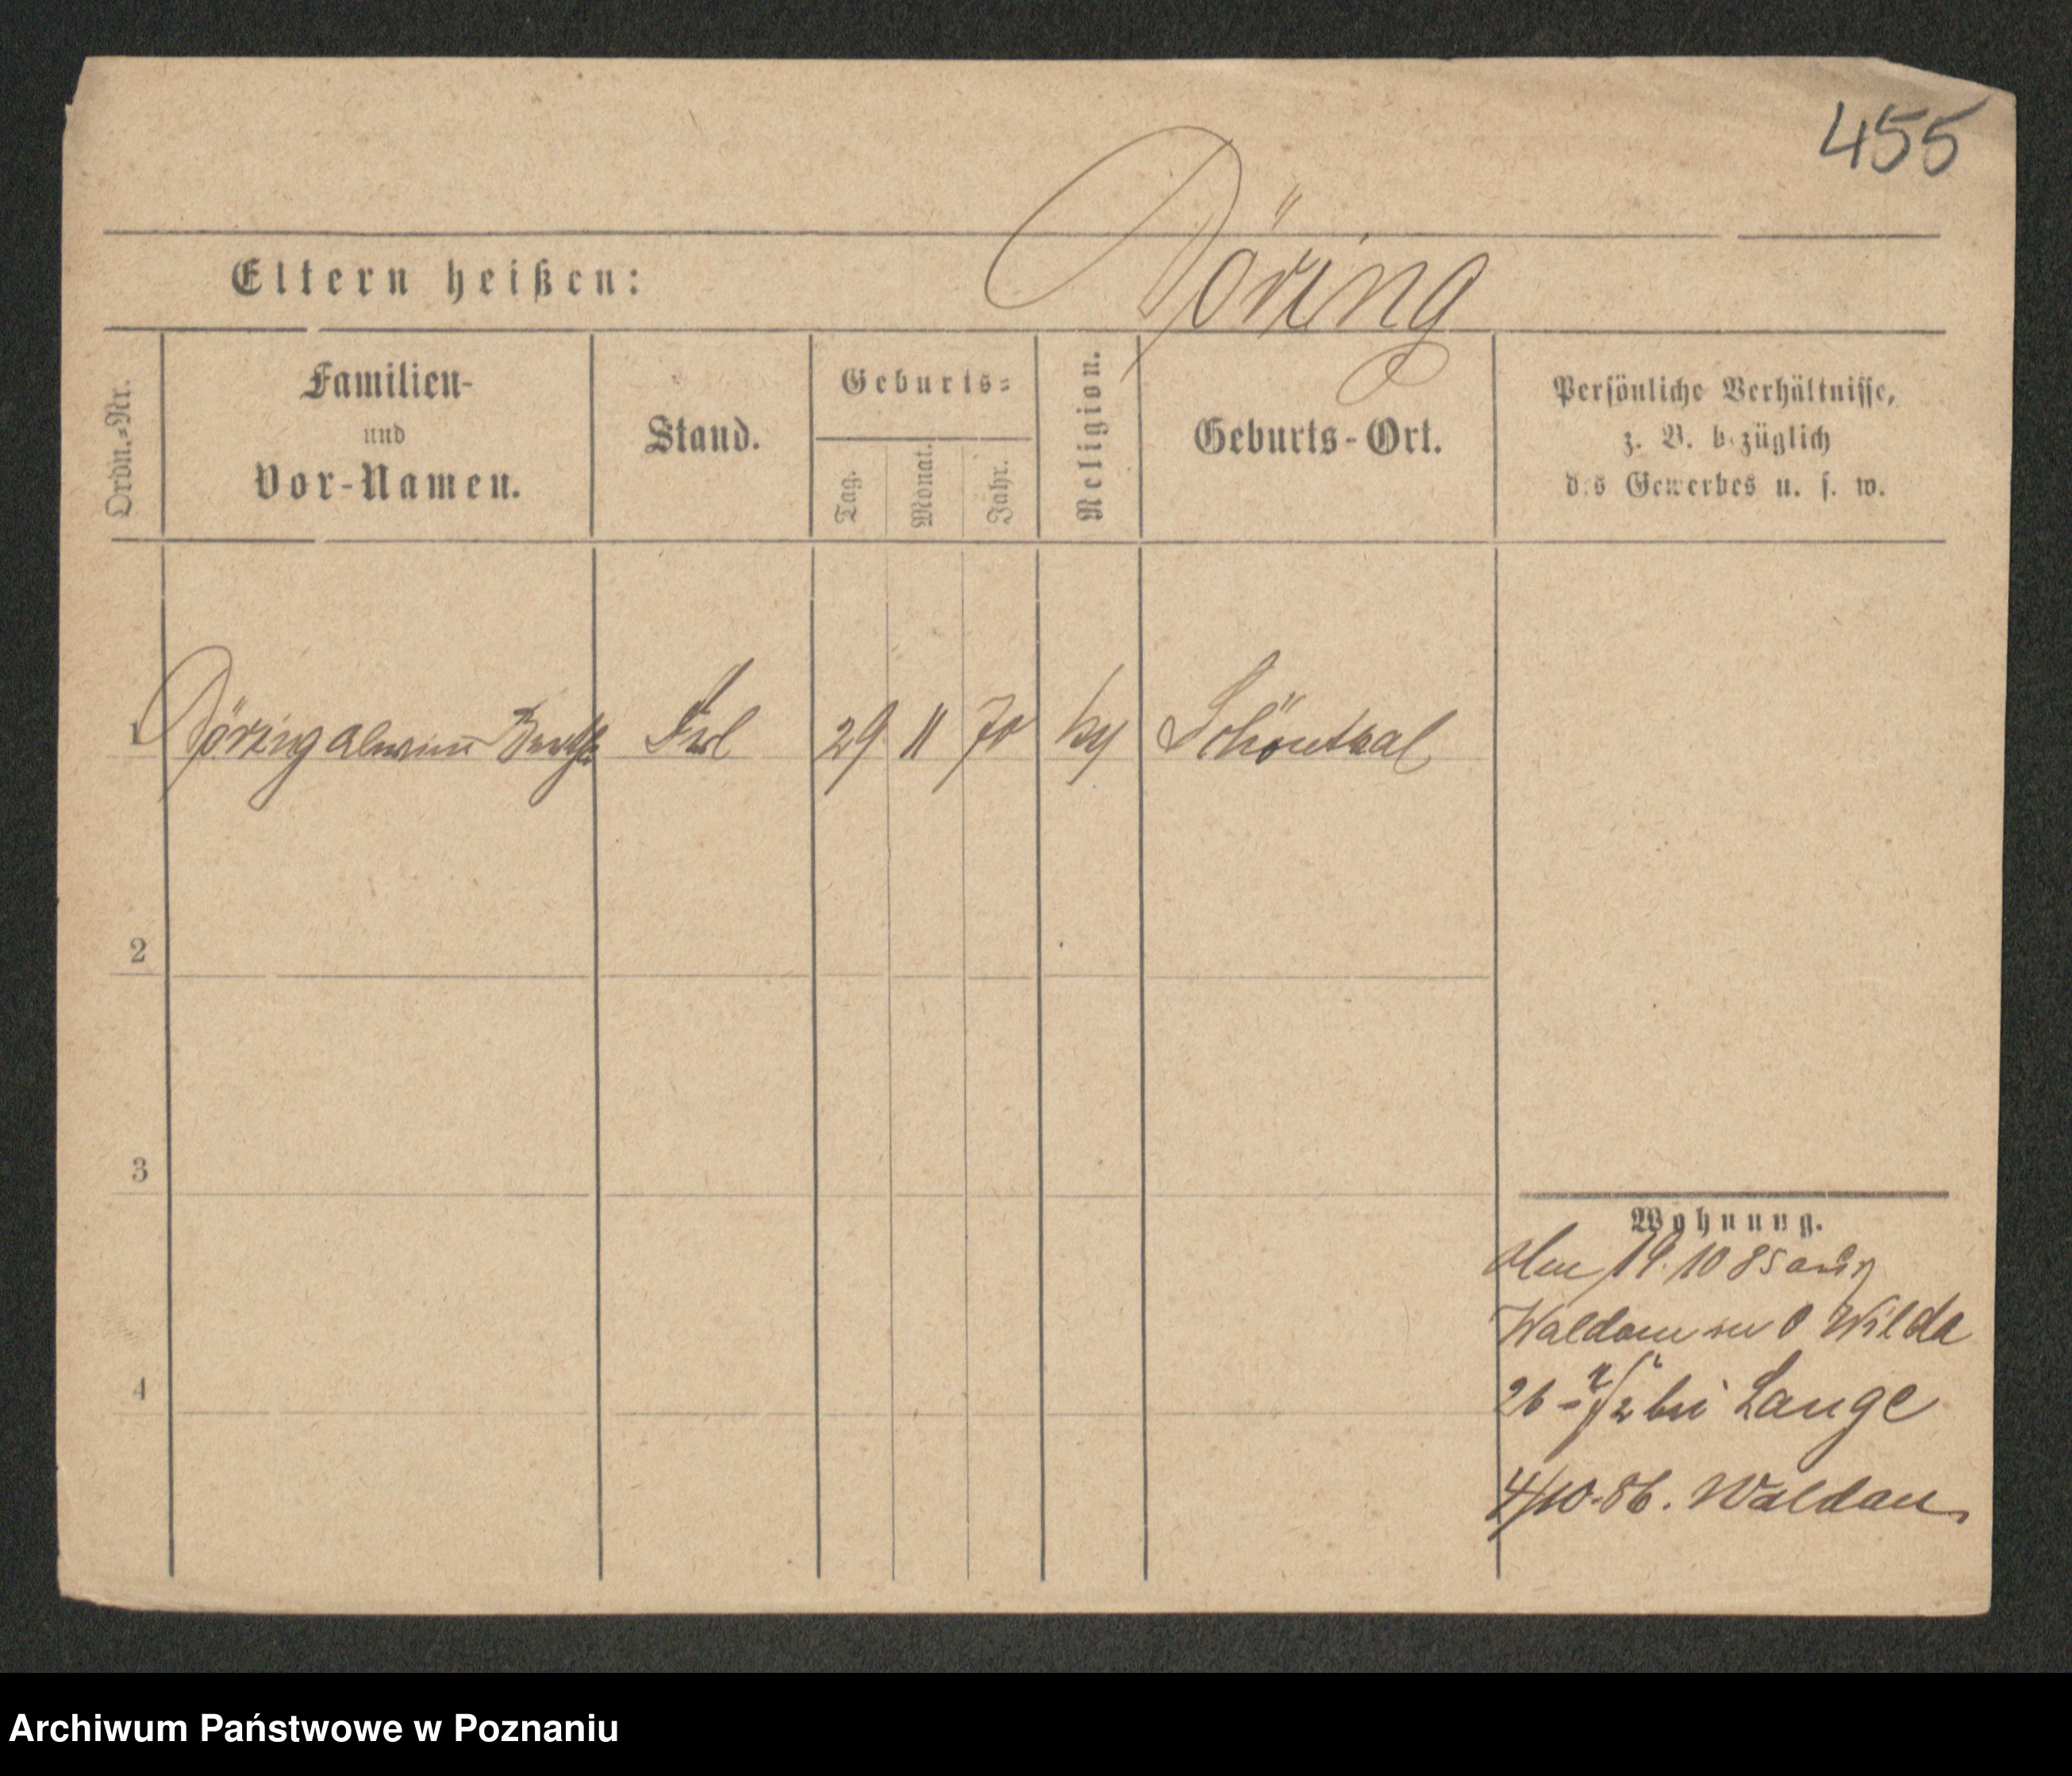 455
Döring
Eltern heißen:
Ordn.-Nr.
Familien-
und
Vor-Namen.
Stand.
Geburts-
Tag.
Monat.
Jahr.
Religion.
Geburts-Ort.
Persönliche Verhältnisse,
z. B. bezüglich
des Gewerbes u. s. w.
1 Döring Frl 29 11 70 Schönthal
2
3
4
Wohnung.
19. 10 85 aus
Waldau in O Wilda
26 bei Lange
4/10.86. Waldau
Archiwum Państwowe w Poznaniu